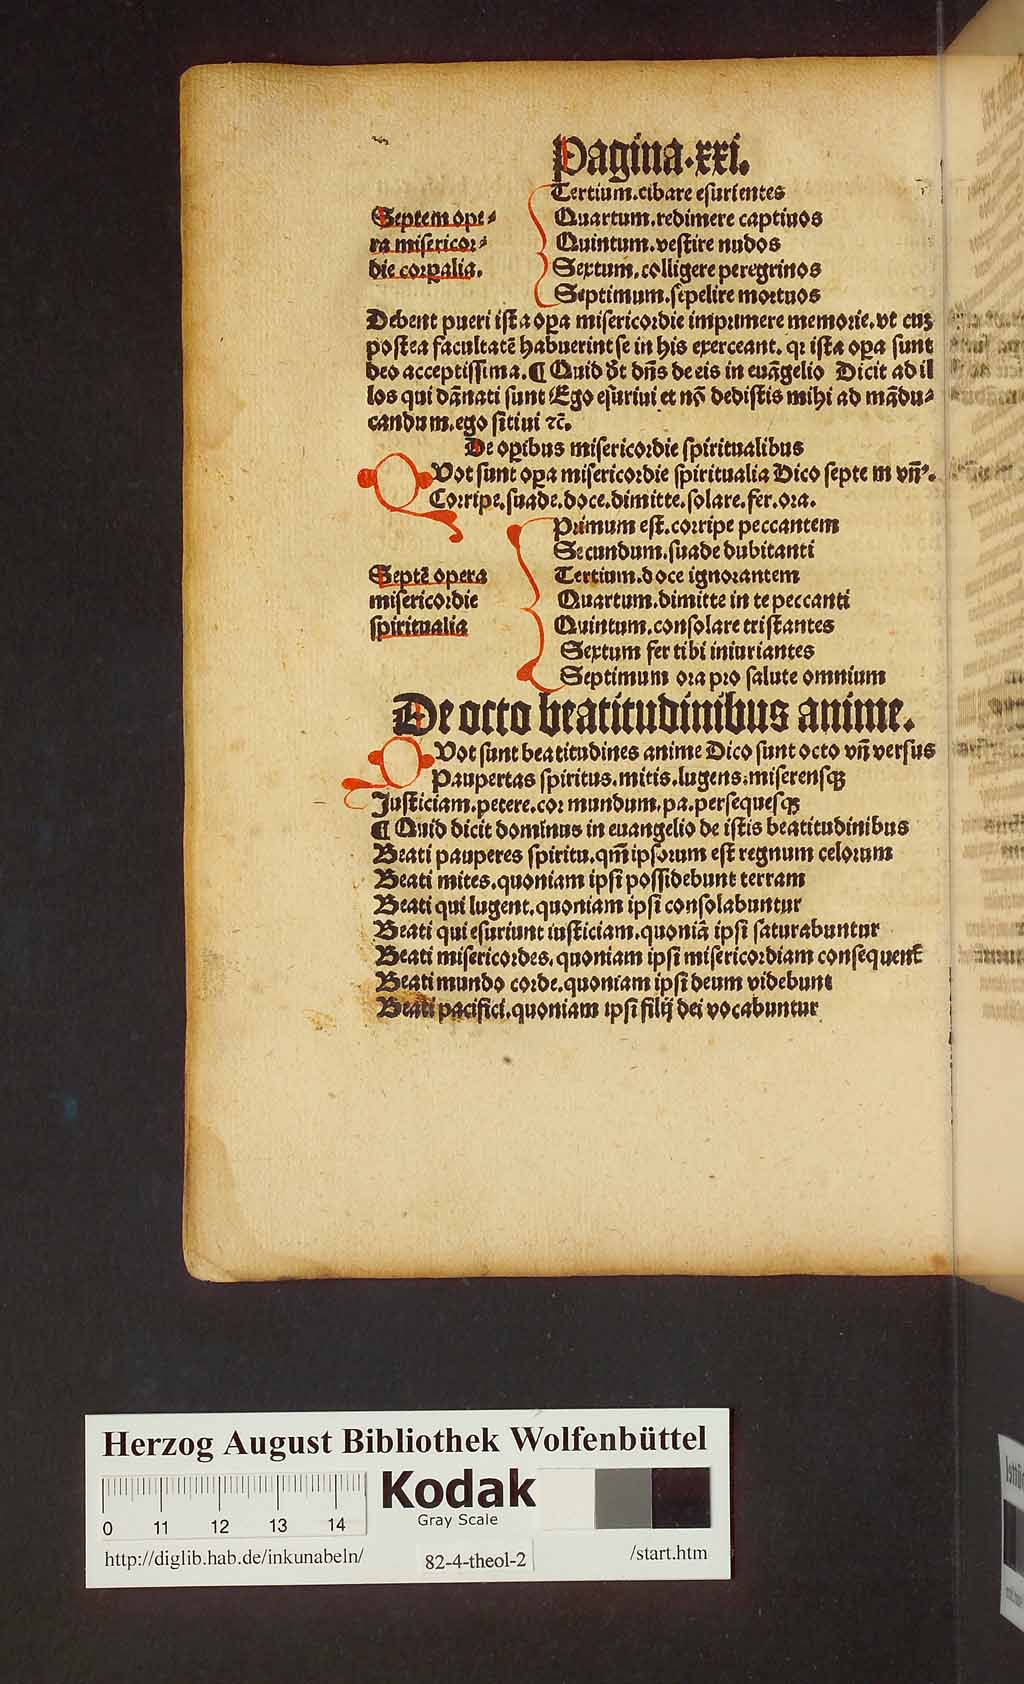 Pagina.xxi.
Tertium.cibare esurientes
Septem ope⸗
ra misericor⸗
die corꝑalia.
Quartum.redimere captiuos
Quintum.vestire nudos
Sextum.colligere peregrinos
Septimum.sepelire mortuos
Debent pueri ista oꝑa misericordie imprimere memorie.vt cuʒ
postea facultatē habuerint se in his exerceant. qꝛ ista oꝑa sunt
deo acceptissima.¶ Quid dt̄ dn̄s de eis in euāgelio Dicit ad il
los qui dānati sunt Ego esuriui et nō dedistis mihi ad mādu⸗
candum.ego sitiui ⁊c̄.
De oꝑibus misericordie spiritualibus
QVot sunt oꝑa misericordie spiritualia Dico septem vn̄⸗.
Corripe.suade.doce.dimitte.solare.fer.ora.
Septē opera
misericordie
spiritualia
Primum est.corripe peccantem
Secundum.suade dubitanti
Tertium.doce ignorantem
Quartum.dimitte in te peccanti
Quintum.consolare tristantes
Sextum fer tibi iniuriantes
Septimum ora pro salute omnium
De octo beatitudinibus anime.
QVot sunt beatitudines anime Dico sunt octo vn̄ versus
Paupertas spiritus.mitis.lugens.miserensqꝫ
Justiciam.petere.cor mundum.pa.persequesqꝫ
¶ Quid dicit dominus in euangelio de istis beatitudinibus
Beati pauperes spiritu.qm̄ ipsorum est regnum celorum
Beati mites.quoniam ipsi possidebunt terram
Beati qui lugent.quoniam ipsi consolabuntur
Beati qui esuriunt iusticiam.quoniā ipsi saturabuntur
Beati misericordes.quoniam ipsi misericordiam consequent̄
Beati mundo corde.quoniam ipsi deum videbunt
Beati pacifici.quoniam ipsi filij dei vocabuntur
Herzog August Bibliothek Wolfenbüttel
Kodak
Gray Scale
0 11 12 13 14
http://diglib.hab.de/inkunabeln/
82-4-theol-2
/start.htm